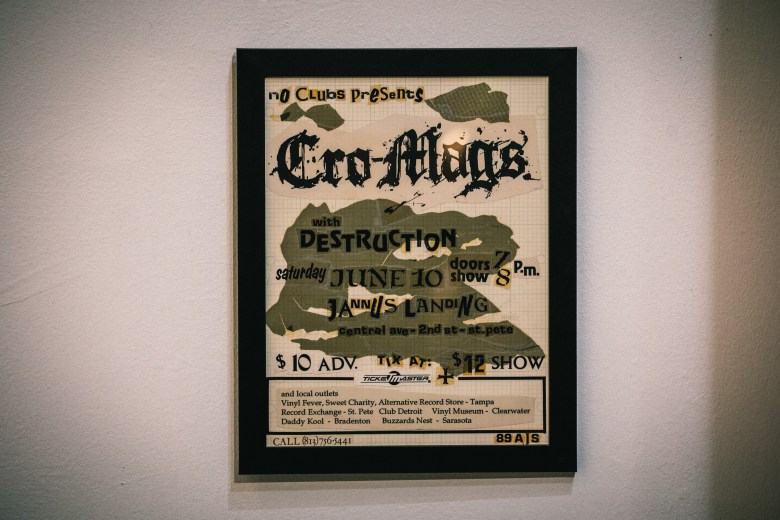 no Clubs Presents
Cro-Mags
with
DESTRUCTION
saturday JUNE 10 doors 7 show 8 P.m.
JANNUS LANDING
central ave - 2nd st - st.pete
$10 ADV. TIX AT: $12 SHOW
TICKETMASTER
and local outlets
Vinyl Fever, Sweet Charity, Alternative Record Store - Tampa
Record Exchange - St. Pete Club Detroit Vinyl Museum - Clearwater
Daddy Kool - Bradenton Buzzards Nest - Sarasota
CALL (813)756-5441 89 A|S